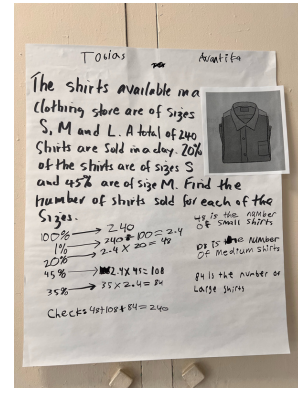 Tobias Avantika
The shirts available in a
clothing store are of sizes
S, M and L. A total of 240
Shirts are sold in a day. 20%
of the shirts are of sizes S
and 45% are of size M. Find the
number of shirts sold for each of the
Sizes.
100% → 240
1% → 240 ÷ 100 = 2.4
20% → 2.4 × 20 = 48
45% → 2.4 × 45 = 108
35% → 35 × 2.4 = 84
Check: 48+108+84 = 240
48 is the number
of small shirts
108 is the number
of medium shirts
84 is the number of
Large shirts